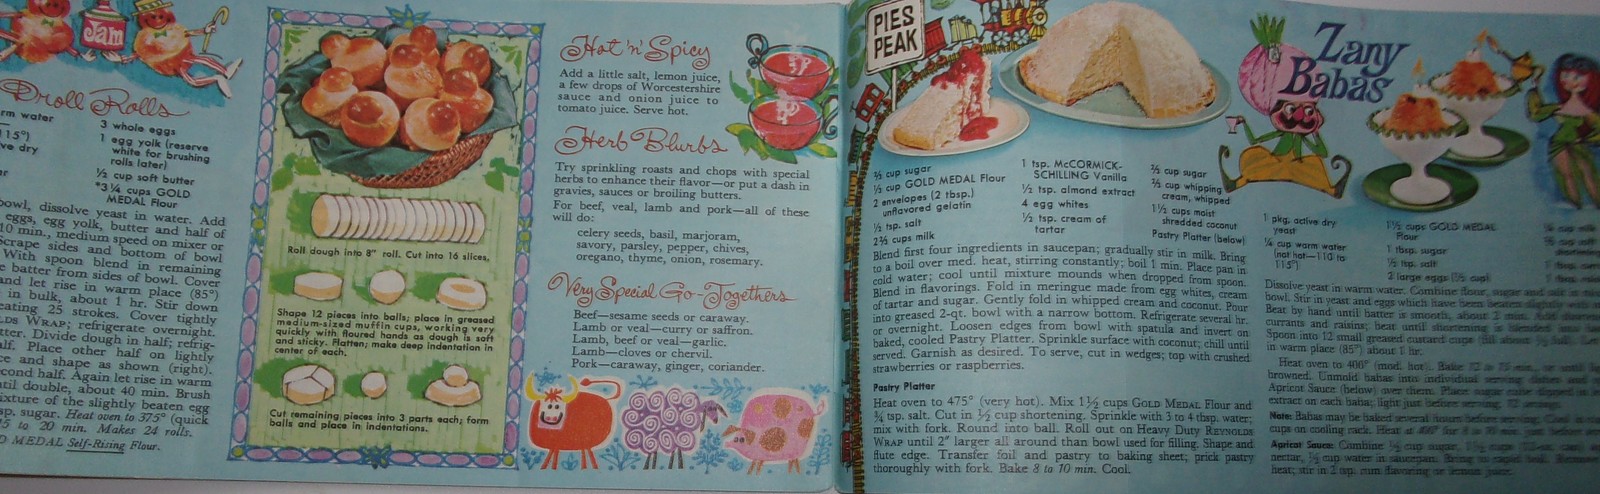 Jam
Droll Rolls
rm water
115°)
ve dry
3 whole eggs
1 egg yolk (reserve
white for brushing
rolls later)
½ cup soft butter
*3¼ cups GOLD
MEDAL Flour
bowl, dissolve yeast in water. Add
eggs, egg yolk, butter and half of
10 min., medium speed on mixer or
Scrape sides and bottom of bowl
With spoon blend in remaining
batter from sides of bowl. Cover
and let rise in warm place (85°)
in bulk, about 1 hr. Stir down
eating 25 strokes. Cover tightly
LDS WRAP; refrigerate overnight.
tter. Divide dough in half; refrig-
lf. Place other half on lightly
ce and shape as shown (right).
cond half. Again let rise in warm
til double, about 40 min. Brush
ixture of the slightly beaten egg
sp. sugar. Heat oven to 375° (quick
15 to 20 min. Makes 24 rolls.
D MEDAL Self-Rising Flour.
Roll dough into 8" roll. Cut into 16 slices.
Shape 12 pieces into balls; place in greased
medium-sized muffin cups, working very
quickly with floured hands as dough is soft
and sticky. Flatten; make deep indentation in
center of each.
Cut remaining pieces into 3 parts each; form
balls and place in indentations.
Hot 'n' Spicy
Add a little salt, lemon juice,
a few drops of Worcestershire
sauce and onion juice to
tomato juice. Serve hot.
Herb Blurbs
Try sprinkling roasts and chops with special
herbs to enhance their flavor—or put a dash in
gravies, sauces or broiling butters.
For beef, veal, lamb and pork—all of these
will do:
celery seeds, basil, marjoram,
savory, parsley, pepper, chives,
oregano, thyme, onion, rosemary.
Very Special Go-Togethers
Beef—sesame seeds or caraway.
Lamb or veal—curry or saffron.
Lamb, beef or veal—garlic.
Lamb—cloves or chervil.
Pork—caraway, ginger, coriander.
PIES
PEAK
⅔ cup sugar
⅓ cup GOLD MEDAL Flour
2 envelopes (2 tbsp.)
unflavored gelatin
½ tsp. salt
2⅔ cups milk
1 tsp. McCORMICK-
SCHILLING Vanilla
½ tsp. almond extract
4 egg whites
½ tsp. cream of
tartar
⅔ cup sugar
⅔ cup whipping
cream, whipped
1½ cups moist
shredded coconut
Pastry Platter (below)
Blend first four ingredients in saucepan; gradually stir in milk. Bring
to a boil over med. heat, stirring constantly; boil 1 min. Place pan in
cold water; cool until mixture mounds when dropped from spoon.
Blend in flavorings. Fold in meringue made from egg whites, cream
of tartar and sugar. Gently fold in whipped cream and coconut. Pour
into greased 2-qt. bowl with a narrow bottom. Refrigerate several hr.
or overnight. Loosen edges from bowl with spatula and invert on
baked, cooled Pastry Platter. Sprinkle surface with coconut; chill until
served. Garnish as desired. To serve, cut in wedges; top with crushed
strawberries or raspberries.
Pastry Platter
Heat oven to 475° (very hot). Mix 1½ cups GOLD MEDAL Flour and
¾ tsp. salt. Cut in ½ cup shortening. Sprinkle with 3 to 4 tbsp. water;
mix with fork. Round into ball. Roll out on Heavy Duty REYNOLDS
WRAP until 2" larger all around than bowl used for filling. Shape and
flute edge. Transfer foil and pastry to baking sheet; prick pastry
thoroughly with fork. Bake 8 to 10 min. Cool.
Zany
Babas
1 pkg. active dry
yeast
¼ cup warm water
(not hot—110 to
115°)
1½ cups GOLD MEDAL
Flour
1 tbsp. sugar
½ tsp. salt
2 large eggs (½ cup)
Dissolve yeast in warm water. Combine flour, sugar
bowl. Stir in yeast and eggs which have been beaten slightly
Beat by hand until batter is smooth, about 2 min. Add
currants and raisins; beat until shortening is blended
Spoon into 12 small greased custard cups
in warm place (85°) about 1 hr.
Heat oven to 400° (mod. hot). Bake
browned. Unmold babas into individual serving dishes
Apricot Sauce (below) over them. Place sugar cube dipped in
extract on each baba; light just before serving.
Note: Babas may be baked several hours before serving.
cups on cooling rack. Heat at 400° for
Apricot Sauce: Combine ½ cup sugar,
nectar, ½ cup water in saucepan. Bring to
heat; stir in 2 tsp. rum flavoring or lemon juice.